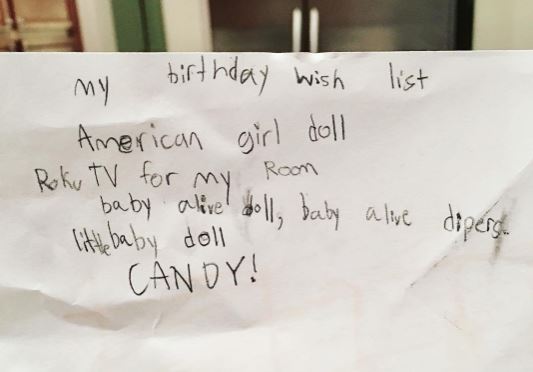 my birthday wish list
American girl doll
Roku TV for my Room
baby alive doll, baby alive dipers.
little baby doll
CANDY!